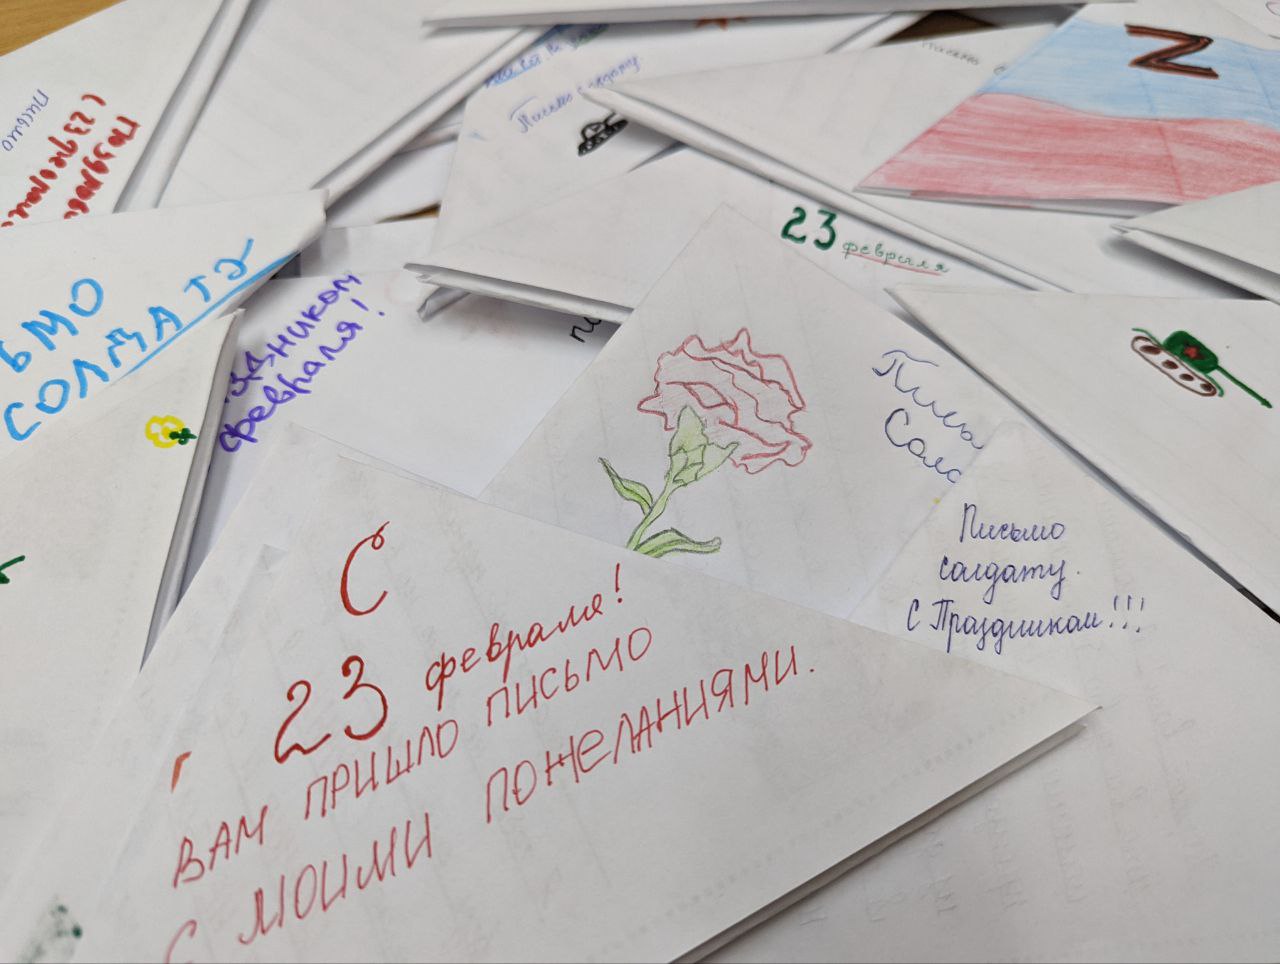 Письмо
с 23
Письмо солдату
Письмо
Z
23
февраля
ЬМО
СОЛДАТУ
здником
февраля!
Пись
Солд
Письмо
солдату.
С Праздником!!!
С
23 февраля!
ВАМ ПРИШЛО ПИСЬМО
С МОИМИ ПОЖЕЛАНИЯМИ.